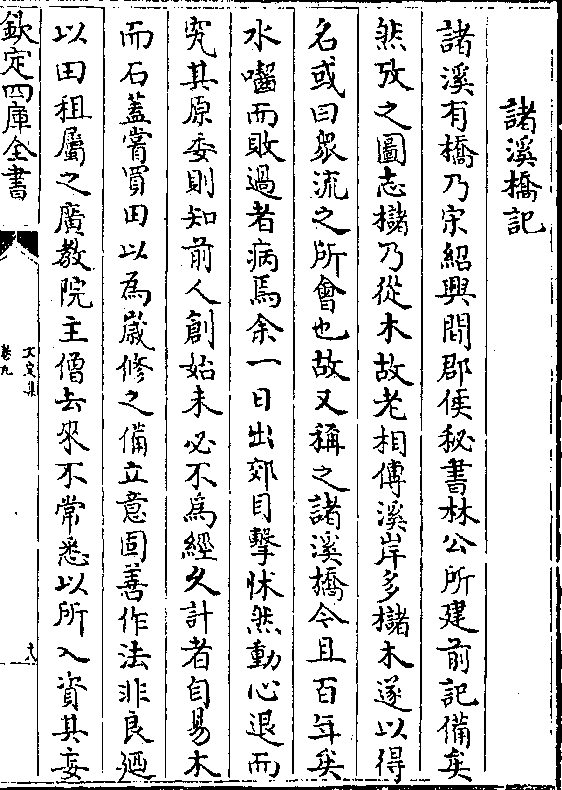 諸溪橋記
諸溪有橋乃宋紹興間郡侯秘書林公所建前記備矣
然攷之圖志櫧乃從木故老相傳溪岸多櫧木遂以得
名或曰衆流之所會也故又稱之諸溪橋今且百年矣
水囓而敗過者病焉余一日出郊目擊怵然動心退而
究其原委則知前人創始未必不為經久計者自易木
而石蓋嘗買田以為歲修之備立意固善作法非良廼
以田租屬之廣教院主僧去來不常悉以所入資其妄
欽定四庫全書
文定集
卷九
十八